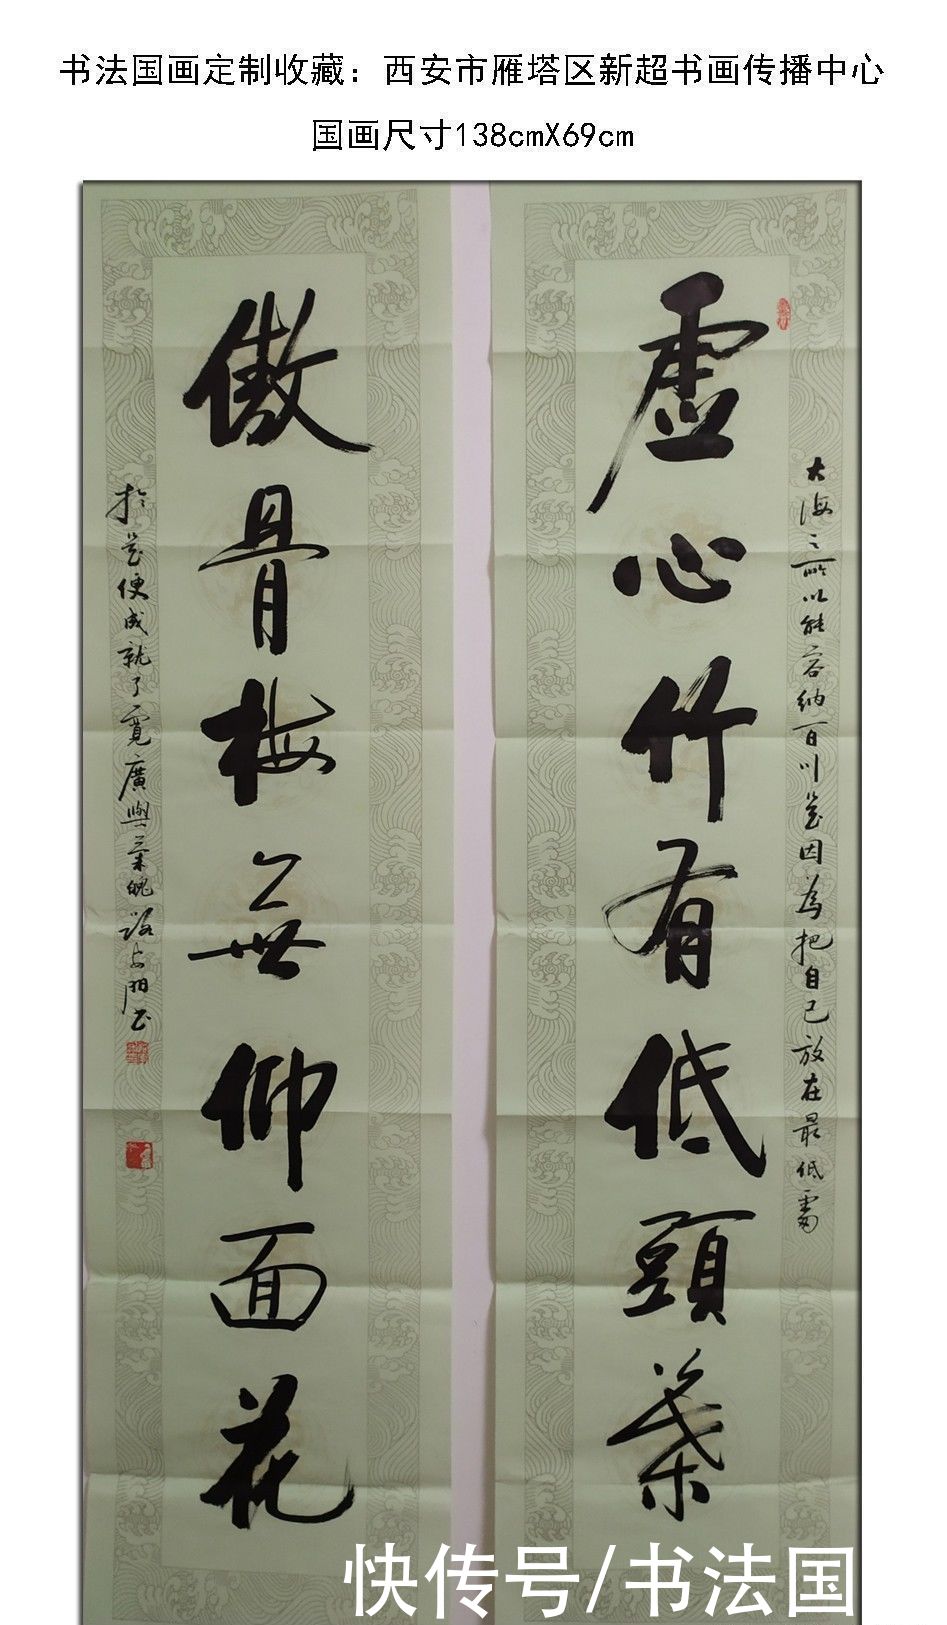 书法国画定制收藏：西安市雁塔区新超书画传播中心
国画尺寸138cmX69cm
大海之所以能容纳百川是因為把自己放在最低處
虛心竹有低頭葉
傲骨梅無仰面花
於是便成就了寬廣與氣魄
快传号/书法国